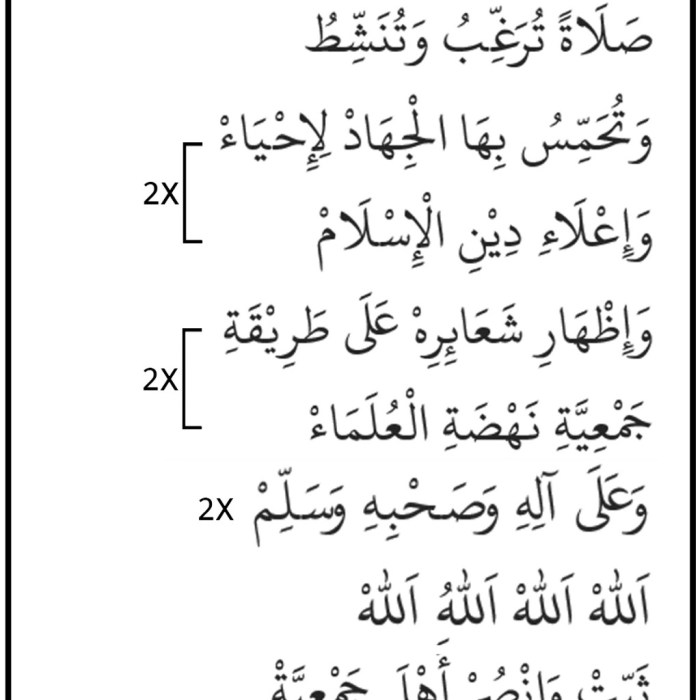 صَلَاةً تُرَغِّبُ وَتُنَشِّطُ
وَتُحَمِّسُ بِهَا الْجِهَادْ لِإِحْيَاءْ
2X
وَإِعْلَاءِ دِيْنِ الْإِسْلَامْ
وَإِظْهَارِ شَعَايِرِهْ عَلَى طَرِيْقَةِ
2X
جَمْعِيَّةِ نَهْضَةِ الْعُلَمَاءْ
وَعَلَى آلِهِ وَصَحْبِهِ وَسَلِّمْ 2X
اَللهْ اَللهْ اَللهُ اَللهْ
ثَبِّتْ وَانْصُرْ أَهْلَ جَمْعِيَّةْ